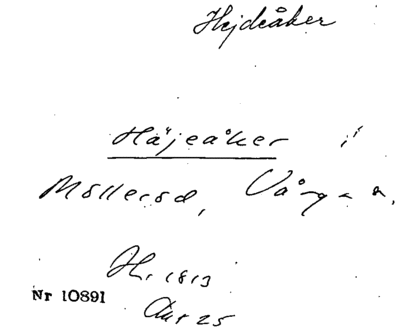 Hejdeåker
Häjeåker i
Mölleröd, Vånga s.
H. 1813
Nr 10891
Akt 25